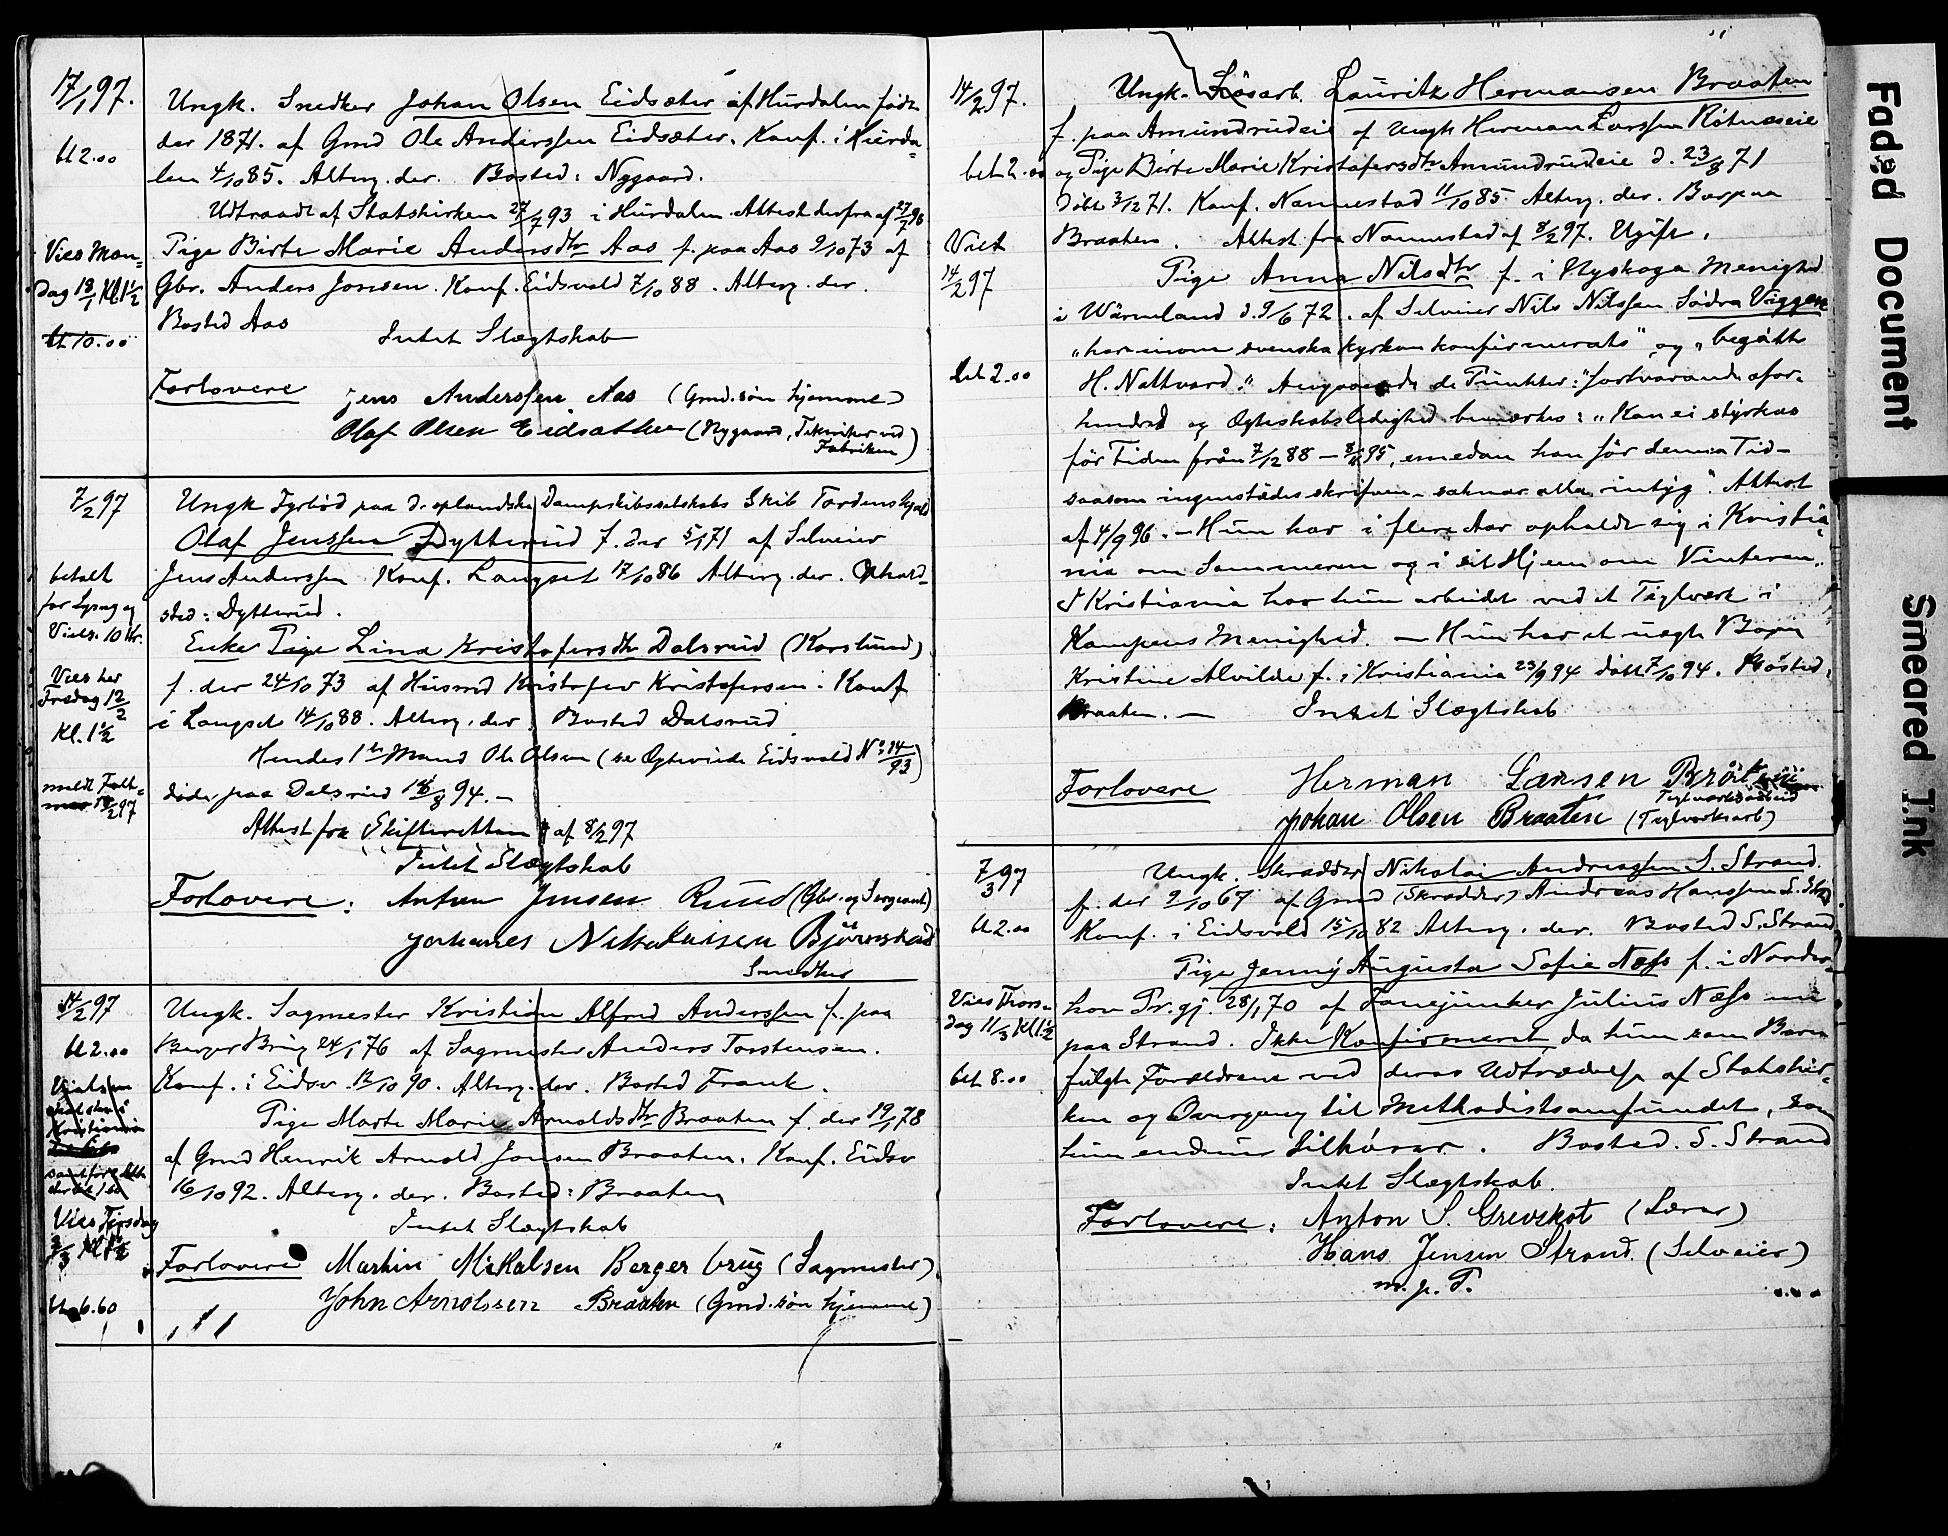 17/1 97.
bt 2.00
Vies Man-
dag 18/1 Kl. 1½
bt 10.00
Ungk. Snedker Johan Olsen Eidsæter af Hurdalen født
der 1871. af Gmd Ole Anderssen Eidsæter. Konf. i Hurda-
len 4/10 85. Alterg. der. Bosted: Nygaard.
Udtraadt af Statskirken 27/7 93 i Hurdalen. Attest derfra af 27/7 96
Pige Birte Marie Andersdtr Aas f. paa Aas 2/10 73 af
Gbr. Anders Jonsen. Konf. Eidsvold 7/10 88. Alterg. der.
Bosted Aas
Intet Slægtskab
Forlovere Jens Anderssen Aas (Gmd.søn hjemme)
Olaf Olsen Eidsæther (Nygaard, ved
Fabriken)
7/2 97
betalt
for Lysng og
Viels. 10 Kr.
Vies her
Fredag 12/2
Kl. 1½
meldt
97
Ungk Fyrbød paa d. oplandske Dampskibsselskabs Skib Tordenskjold
Olaf Jenssen Dytterud f. der 5/1 71 af Selveier
Jens Anderssen Konf. Langset 17/10 86 Alterg. der. Ophold-
sted: Dytterud.
Enke Pige Lina Kristofersdtr Dalsrud (Korslund)
f. der 24/10 73 af Husmd Kristofer Kristofersen. Konf
i Langset 14/10 88. Alterg. der. Bosted Dalsrud
Hendes 1ste Mand Ole Olsen (se Egteviede Eidsvold No 14/93)
døde paa Dalsrud 94. —
Attest fra Skifteretten af 8/2 97
Intet Slægtskab
Forlovere: Anton Jensen Ruud (Gbr. og Sergeant)
Johanes Nikolaisen Björnstad
Snedker
14/2 97
bt 2.00
Kristiania
Vies Tirsdag
2/3 Kl 1½
bt 6.60
Ungk. Sagmester Kristian Alfred Anderssen f. paa
Berger Brug 24/1 76 af Sagmester Anders Torstensen.
Konf. i Eidsv. 12/10 90. Alterg. der. Bosted Frank.
Pige Marte Marie Arnoldsdtr Braaten f. der 19/1 78
af Gmd Henrik Arnold Jonsen Braaten. Konf. Eidsv
16/10 92. Alterg. der. Bosted: Braaten
Intet Slægtskab
Forlovere Martin Mikalsen Bergerbrug (Sagmester)
John Arnolssen Bråten (Gmd.søn hjemme)
14/2 97.
bet 2.00
Viet
14/2 97
bet 2.00
Ungk. Løsarb. Lauritz Hermansen Braaten
f. paa Amundrudeie af Ungk Herman Larssen Røtneseie
og Pige Birte Marie Kristofersdtr Amundrudeie d. 23/8 71
døbt 3/12 71. Konf. Nannestad 11/10 85. Alterg. der. Bor paa
Braaten. Attest fra Nannestad af 8/2 97. Ugift.
Pige Anna Nilsdtr f. i Nyskoga Menighed
i Wärmland d. 9/6 72. af Selveier Nils Nilssen Södra Viggen
"har inom svenska kyrkan konfirmerats" og "begått
H. Nattvard." Angaaende de Punkter: "fortvarande afor-
hindred og Egteskabsledighed bemærkes: "Kan ei styrkas
för Tiden från 7/12 88 — 95, emedan hon för denna Tid —
saasom ingenstädes skrifven — saknar alla intyg". Attest
af 4/9 96. — Hun har i flere Aar opholdt sig i Kristia-
nia om Sommeren og i sit Hjem om Vinteren.
I Kristiania har hun arbeidet ved et Teglværk i
Kampens Menighed. — Hun har et uægte Barn
Kristine Alvilde f. i Kristiania 23/9 94 døbt 7/10 94. Bosted:
Braaten. — Intet Slægtskab
Forlovere Herman Larsen
Teglværksarbeid
Johan Olsen Braaten (Teglværksarb)
7/3 97
bt 2.00
Vies Thors-
dag 11/3 Kl. 1½
bet 8.00
Ungk. Skrædder Nikolai Andreassen S. Strand
f. der 2/10 67 af Gmd (Skrædder) Andreas Hanssen S. Strd
Konf. i Eidsvold 15/10 82 Alterg. der. Bosted S. Strand
Pige Jenny Augusta Sofie Næss f. i Nordre-
hov Pr.gj. 28/1 70 af Fanejunker Julius Næss nu
paa Strand. Ikke Konfirmeret, da hun som Barn
fulgte Forældrene ved deres Udtrædelse af Statskir-
ken og Overgang til Methodistsamfundet, som
hun endnu tilhører. Bosted. S. Strand
Intet Slægtskab.
Forlovere: Anton S. Grevskot (Lærer)
Hans Jensen Strand. (Selveier)
m. p. P.
Faded Document
Smeared Ink